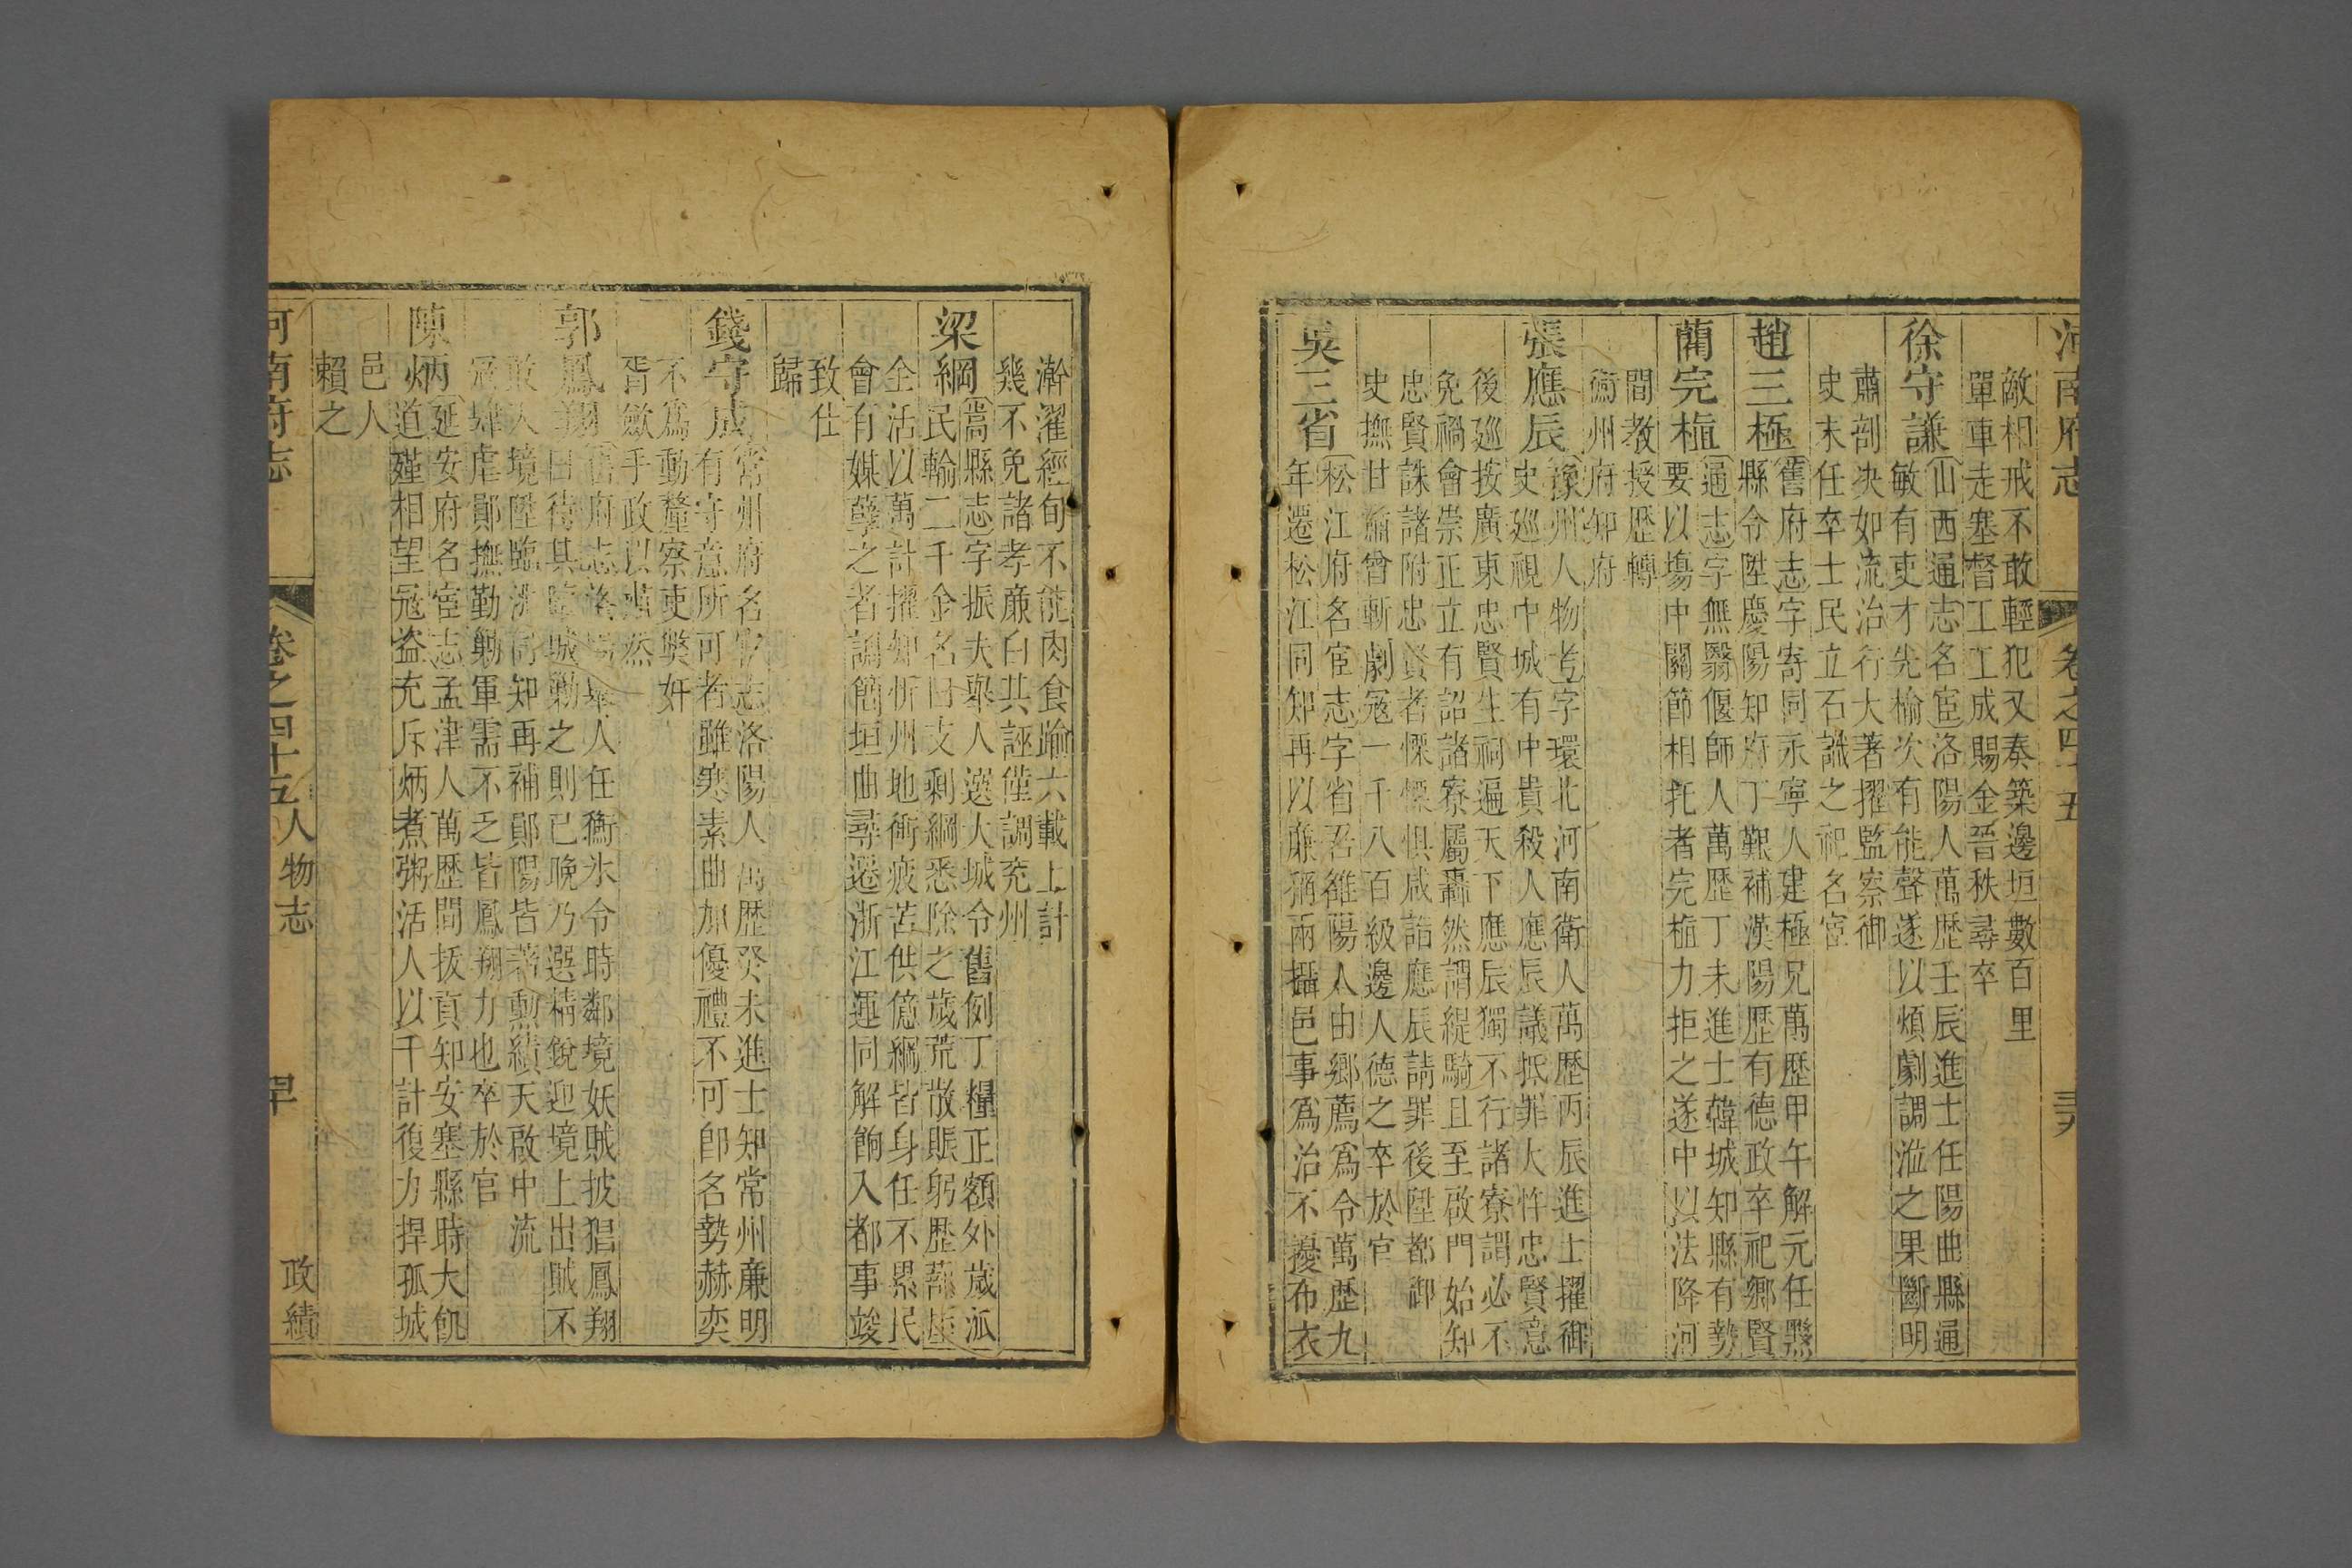 河南府志
卷之四十五
三六
敵相戒不敢輕犯又奏築邊垣數百里
單車走塞督工工成賜金晉秩尋卒
徐守謙
〔山西通志名宦〕洛陽人萬歷壬辰進士任陽曲縣通
敏有吏才先楡次有能聲遂以煩劇調涖之果斷明
肅剖决如流治行大著擢監察御
史未任卒士民立石誌之祀名宦
趙三極
〔舊府志〕字寄同永寧人建極兄萬歷甲午解元任黟
縣令陞慶陽知府丁艱補漢陽歷有德政卒祀鄉賢
藺完楦
〔通志〕字無翳偃師人萬歷丁未進士韓城知縣有勢
要以塲中關節相托者完楦力拒之遂中以法降河
間教授歷轉
衛州府知府
張應辰
〔豫州人物考〕字環北河南衛人萬歷丙辰進士擢御
史廵視中城有中貴殺人應辰議抵罪大忤忠賢意
後廵按廣東忠賢生祠遍天下應辰獨不行諸寮謂必不
免禍會崇正立有詔諸寮屬轟然謂緹騎且至啟門始知
忠賢誅諸附忠賢者慄慄惧咸詣應辰請罪後陞都御
史撫甘肅曾斬劇寇一千八百級邊人德之卒於官
吳三省
〔松江府名宦志〕字省吾雒陽人由鄉薦爲令萬歷九
年遷松江同知再以廉稱兩攝邑事爲治不擾布衣
澣濯經旬不能肉食踰六載上計
幾不免諸孝廉白其誣僅調充州
梁綱
〔嵩縣志〕字振夫舉人選大城令舊例丁糧正額外歲派
民輸二千金名曰支剩綱悉除之歲荒散賑躬歷蔀屋
全活以萬計擢知忻州地衝疲苦供億綱皆身任不累民
會有媒孽之者謫簡垣曲尋遷浙江運同解餉入都事竣
致仕
歸
錢守成
〔常州府名宦志〕洛陽人萬歷癸未進士知常州廉明
有守意所可者雖寒素曲加優禮不可卽名勢赫奕
不爲動釐察吏獘奸
胥歛手政以肅然
郭鳳翔
〔舊府志〕洛陽舉人任衡水令時鄰境妖賊披猖鳳翔
曰待其臨城勦之則已晚乃選精銳迎境上出賊不
敢入境陞臨洮同知再補鄖陽皆著勳績天啟中流
寇肆虐鄖撫勤勦軍需不乏皆鳳翔力也卒於官
陳炳
〔延安府名宦志〕孟津人萬歷間拔貢知安塞縣時大飢
道殣相望冦盜充斥炳煮粥活人以千計復力捍孤城
邑人
賴之
河南府志
卷之四十五 人物志
政績